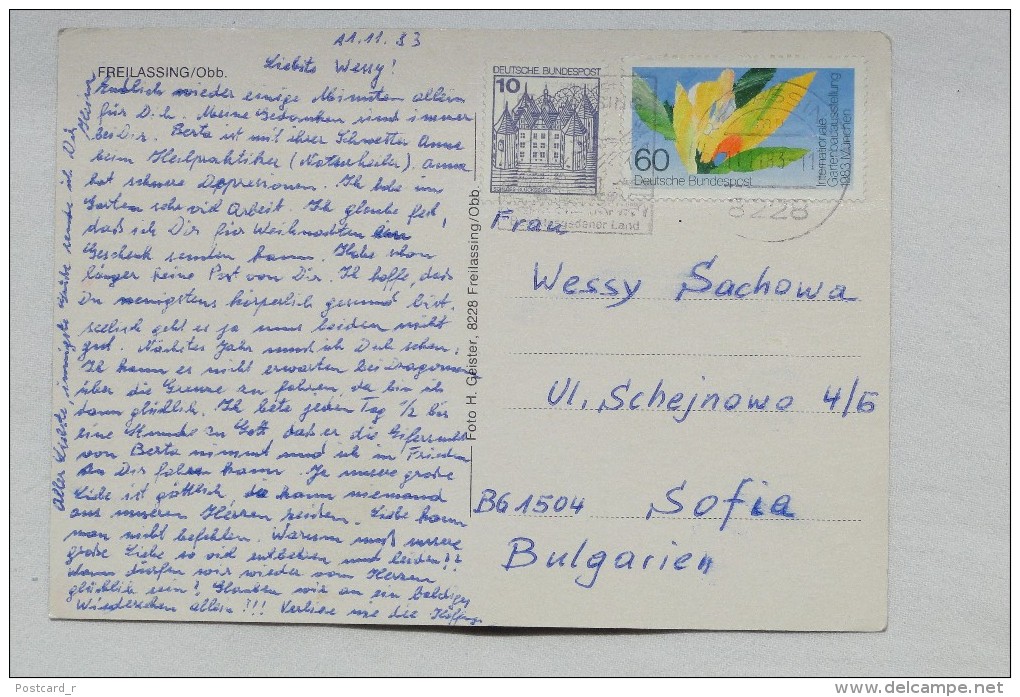 11.11.83
FREILASSING/Obb.
Liebste Wessy!
Endlich wieder einige Minuten allein
für Dich. Meine Gedanken sind immer
bei Dir. Berta ist mit ihrer Schwester Anna
beim Heilpraktiker (Naturheiler). Anna
hat schwere Depressionen. Ich habe im
Garten sehr viel Arbeit. Ich glaube fest,
daß ich Dir für Weihnachten ein
Geschenk senden kann. Habe schon
länger keine Post von Dir. Ich hoffe, daß
Du wenigstens körperlich gesund bist,
seelisch geht es ja uns beiden nicht
gut. Nächstes Jahr muß ich Dich sehen.
Ich kann es nicht erwarten bei Dragoman
über die Grenze zu fahren, da bin ich
dann glücklich. Ich bete jeden Tag 1/2 bis
eine Stunde zu Gott daß er die Eifersucht
von Berta nimmt und ich in Frieden
zu Dir fahren kann. Ja unsere große
Liebe ist göttlich, die kann niemand
aus unseren Herzen reißen. Liebe kann
man nicht befehlen. Warum muß unsere
große Liebe so viel entbehren und leiden??
dann dürfen wir wieder vom Herzen
glücklich sein? Glauben wir an ein baldiges
Wiedersehen allein!!! Verliere nie die Hoffnung
Aller Liebste, innigste Grüße sende ich Dir
Heinz
Foto H. Geister, 8228 Freilassing/Obb.
DEUTSCHE BUNDESPOST
10
60
Deutsche Bundespost
Internationale
Gartenbauausstellung
1983 München
11.11.83-11
8228
Berchtesgadener Land
Frau
Wessy Sachowa
Ul. Schejnowo 4/Б
BG 1504 Sofia
Bulgarien
Postcard_r
www.delcampe.net